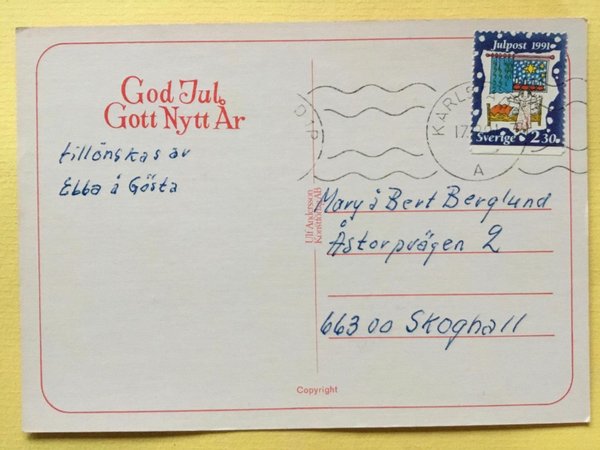 God Jul
Gott Nytt År
tillönskas av
Ebba å Gösta
Julpost 1991
Sverige 2.30
KARLS
17
A
Ulf Andersson
Konsttidning AB
Mary å Bert Berglund
Åstorpvägen 2
663 00 Skoghall
Copyright